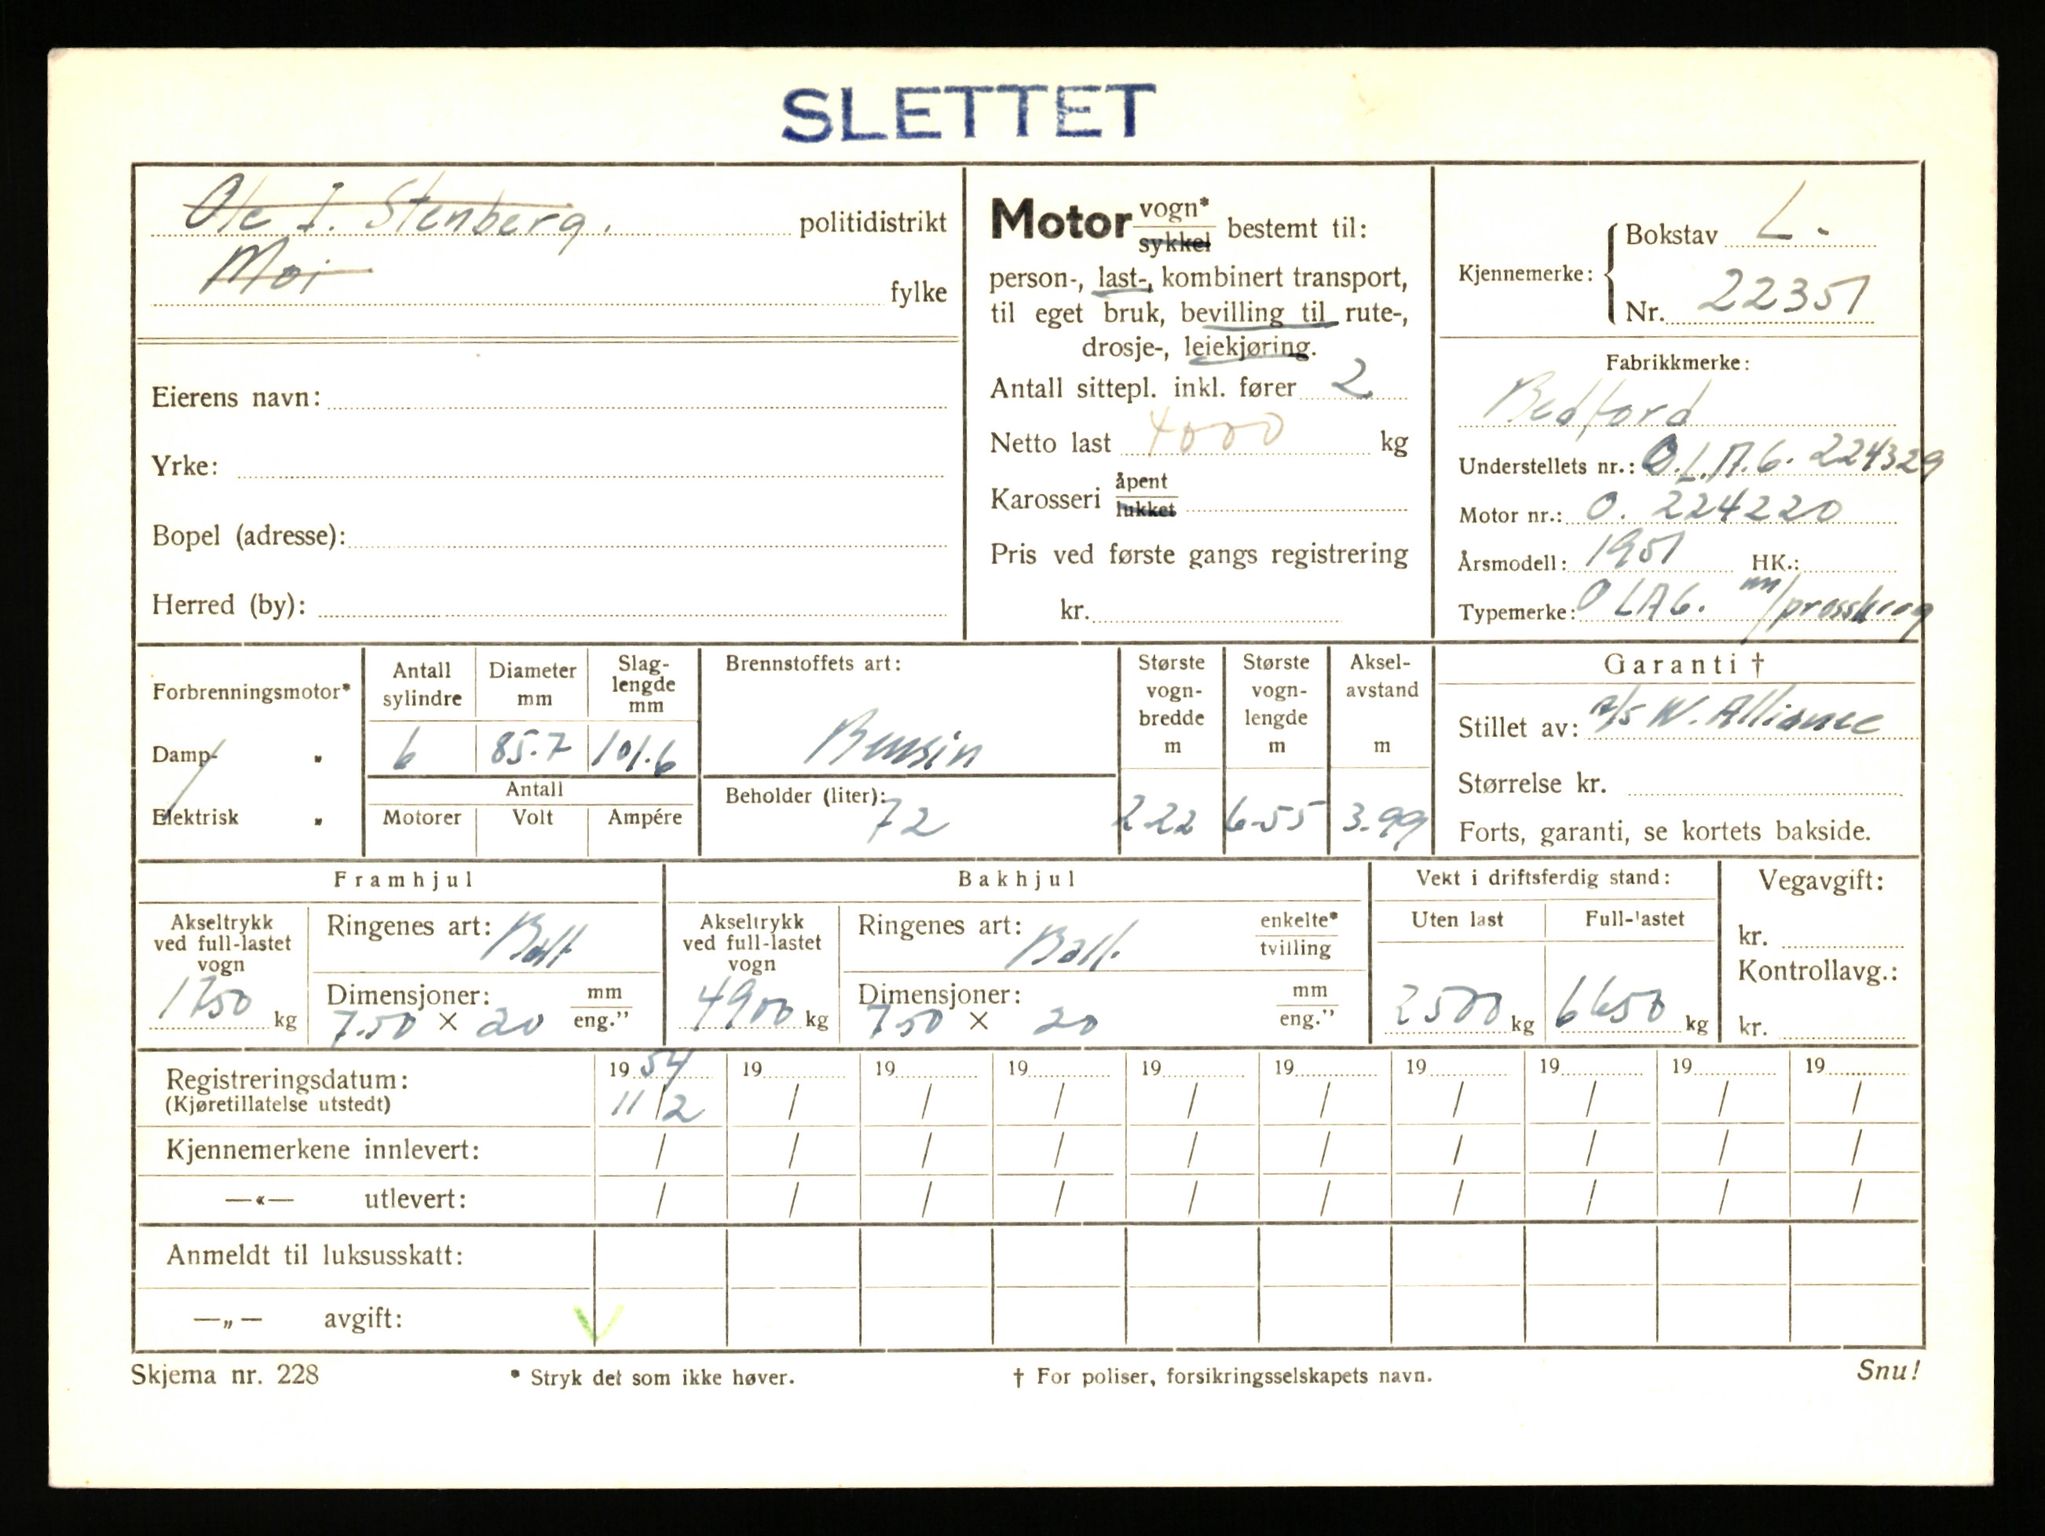 SLETTET
Ole I. Stenberg. politidistrikt
Moi fylke
Eierens navn:
Yrke:
Bopel (adresse):
Herred (by):
Motor vogn* sykkel bestemt til:
person-, last-, kombinert transport,
til eget bruk, bevilling til rute-,
drosje-, leiekjøring.
Antall sittepl. inkl. fører 2
Netto last 4000 kg
Karosseri åpent lukket
Pris ved første gangs registrering
kr.
Kjennemerke: Bokstav L.
Nr. 22351
Fabrikkmerke:
Bedford
Understellets nr.: O.L.A.G. 224329
Motor nr.: O. 224220
Årsmodell: 1951 HK.:
Typemerke: OLAG.
Forbrenningsmotor*
Damp- "
Elektrisk "
Antall sylindre Diameter mm Slag-lengde mm
6 85.7 101.6
Antall
Motorer Volt Ampére
Brennstoffets art:
Bensin
Beholder (liter): 72
Største vogn-bredde m Største vogn-lengde m Aksel-avstand m
2.22 6.55 3.99
Garanti †
Stillet av: A/S N. Alliance
Størrelse kr.
Forts, garanti, se kortets bakside.
Framhjul
Akseltrykk ved full-lastet vogn
1750 kg
Ringenes art: Ball
Dimensjoner: mm
7.50 × 20 eng."
Bakhjul
Akseltrykk ved full-lastet vogn
4900 kg
Ringenes art: Ball. enkelte* tvilling
Dimensjoner: mm
750 × 20 eng."
Vekt i driftsferdig stand:
Uten last Full-lastet
2500 kg 6650 kg
Vegavgift:
kr.
Kontrollavg.:
kr.
Registreringsdatum: 19 54 19 19 19 19 19 19 19 19 19
(Kjøretillatelse utstedt) 11/2 / / / / / / / / /
Kjennemerkene innlevert: / / / / / / / / / /
—«— utlevert: / / / / / / / / / /
Anmeldt til luksusskatt:
—„— avgift:
Skjema nr. 228 * Stryk det som ikke høver. † For poliser, forsikringsselskapets navn. Snu!